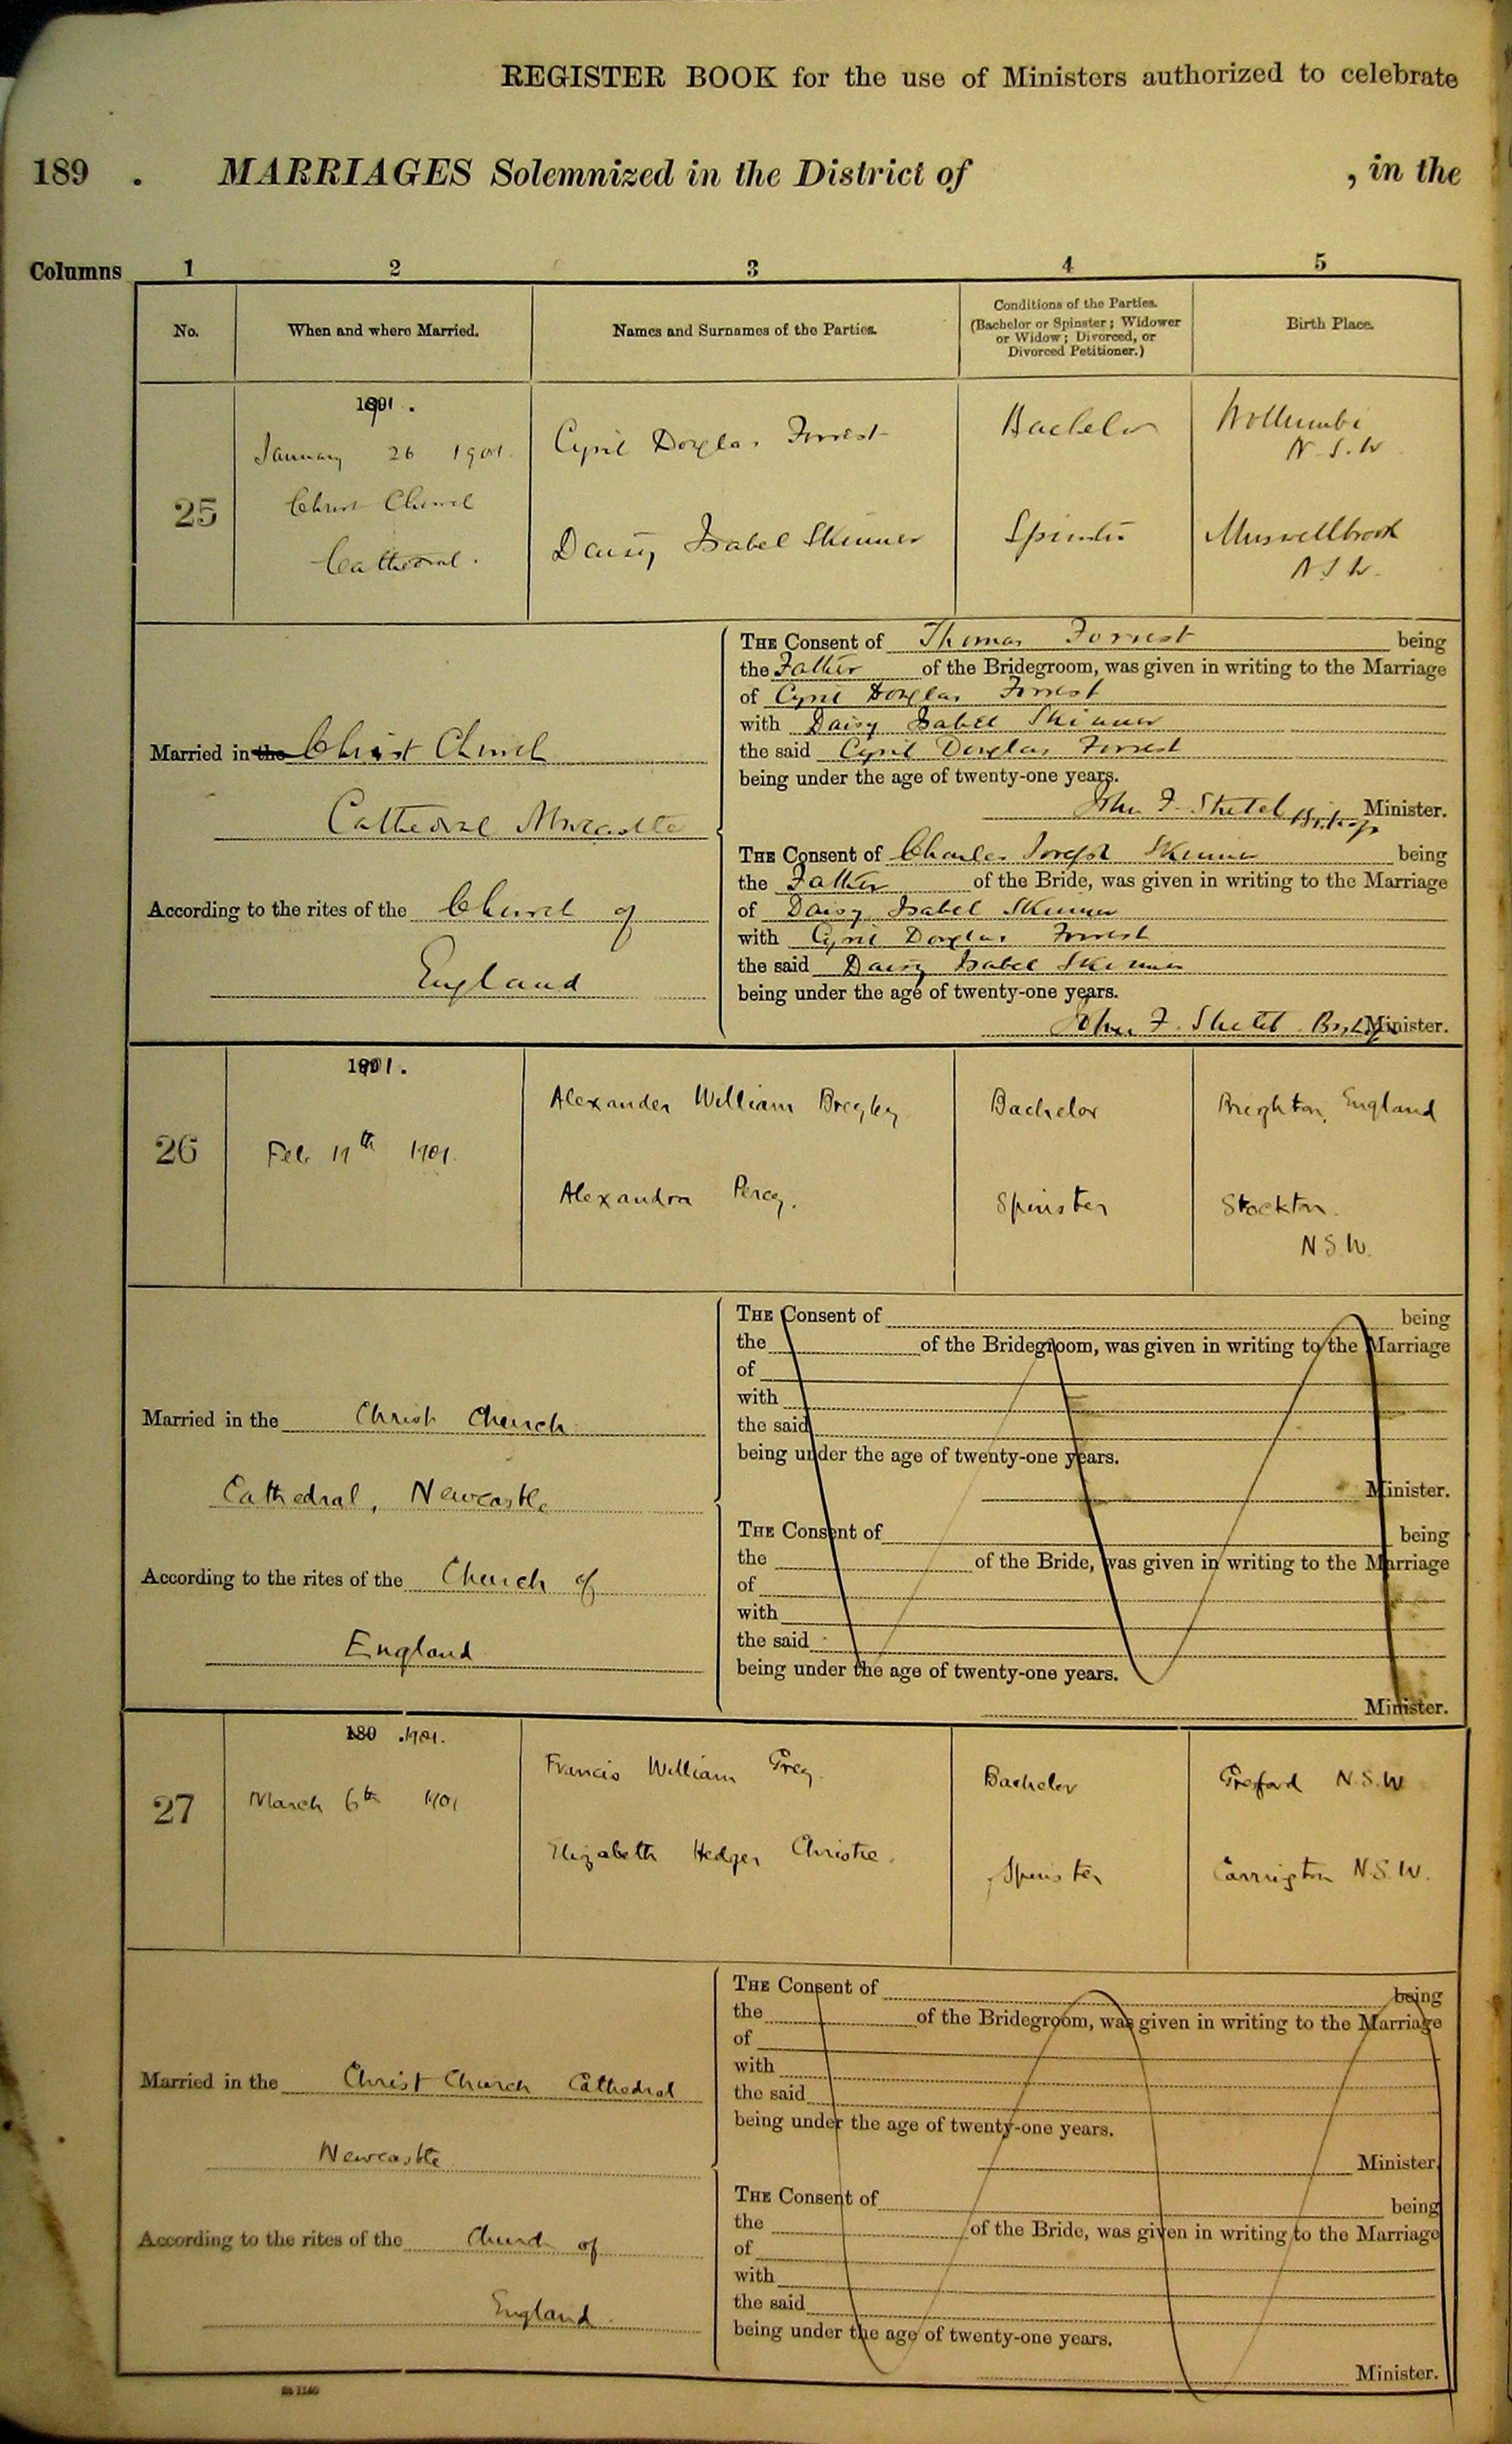 REGISTER BOOK for the use of Ministers authorized to celebrate
189 . MARRIAGES Solemnized in the District of , in the
Columns 1 2 3 4 5
No. When and where Married. Names and Surnames of the Parties. Conditions of the Parties. (Bachelor or Spinster; Widower or Widow; Divorced, or Divorced Petitioner.) Birth Place.
1901.
January 26 1901. Cyril Douglas Forrest Bachelor Wollumbi
N.S.W
25 Christ Church
Cathedral. Daisy Isabel Skinner Spinster Muswellbrook
N.S.W.
THE Consent of Thomas Forrest being
the Father of the Bridegroom, was given in writing to the Marriage
of Cyril Douglas Forrest
with Daisy Isabel Skinner
the said Cyril Douglas Forrest
being under the age of twenty-one years.
John F. Minister.
Married in the Christ Church
Cathedral Newcastle
According to the rites of the Church of
England
THE Consent of Charles Joseph Skinner being
the Father of the Bride, was given in writing to the Marriage
of Daisy Isabel Skinner
with Cyril Douglas Forrest
the said Daisy Isabel Skinner
being under the age of twenty-one years.
John F. Minister.
1901.
26 Feb. 11th 1901. Alexander William Bachelor Brighton, England
Alexandra Percy. Spinster Stockton.
N.S.W.
Married in the Christ Church
Cathedral, Newcastle
According to the rites of the Church of
England
THE Consent of being
the of the Bridegroom, was given in writing to the Marriage
of
with
the said
being under the age of twenty-one years.
Minister.
THE Consent of being
the of the Bride, was given in writing to the Marriage
of
with
the said
being under the age of twenty-one years.
Minister.
189 . 1901.
27 March 6th 1901 Francis William Grey. Bachelor Gresford N.S.W
Elizabeth Hedger Christie. Spinster Carrington N.S.W.
Married in the Christ Church Cathedral
Newcastle
According to the rites of the Church of
England.
THE Consent of being
the of the Bridegroom, was given in writing to the Marriage
of
with
the said
being under the age of twenty-one years.
Minister.
THE Consent of being
the of the Bride, was given in writing to the Marriage
of
with
the said
being under the age of twenty-one years.
Minister.